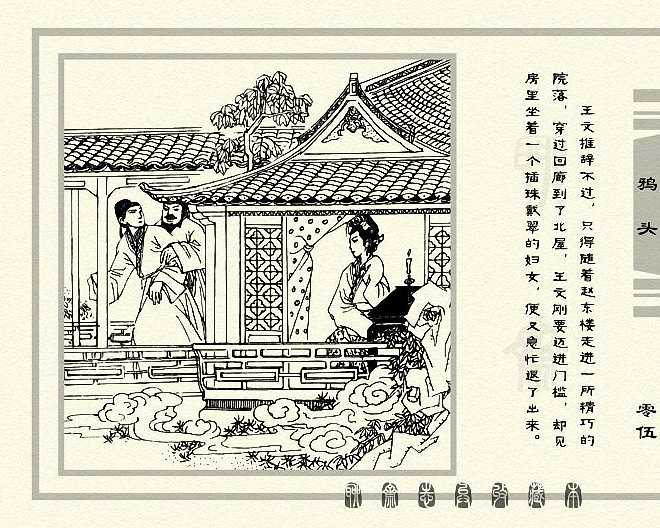 王文推辞不过，只得随着赵东楼走进一所精巧的
院落，穿过回廊到了北屋，王文刚要迈进门槛，却见
房里坐着一个插珠戴翠的妇女，便又急忙退了出来。
鸦头
零伍
聊斋志异收藏本